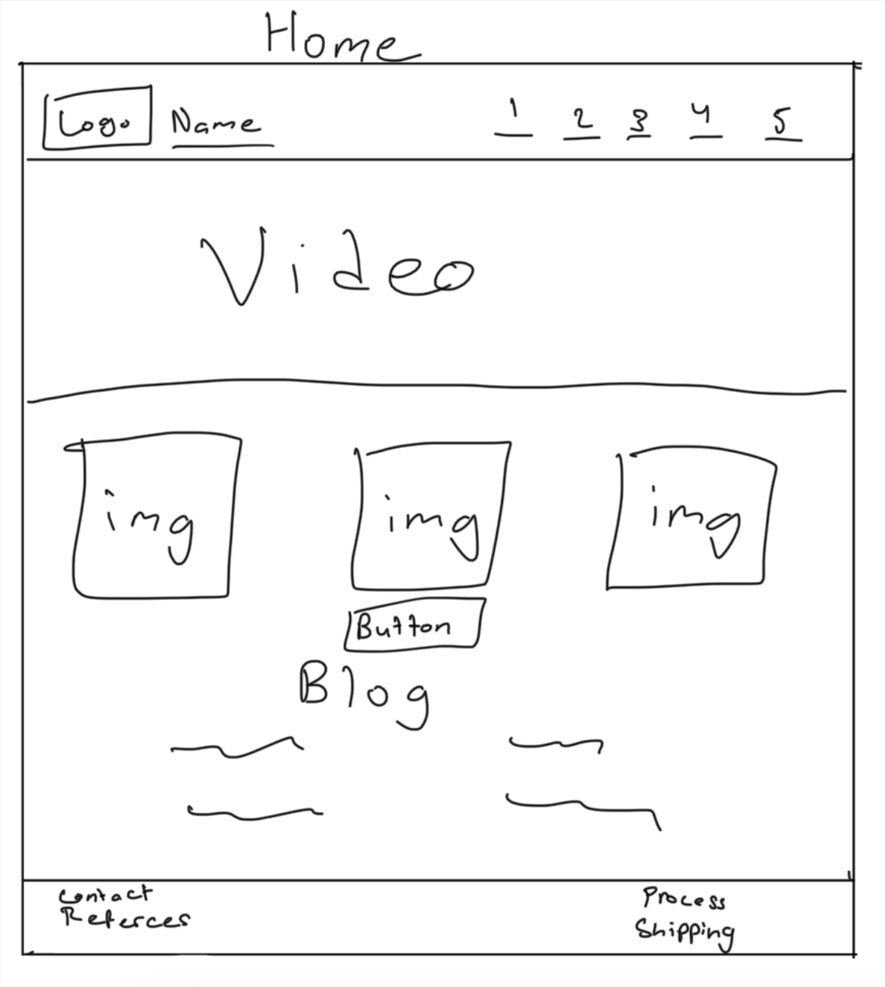 Home
Logo Name 1 2 3 4 5
Video
img img img
Button
Blog
Contact Process
Referces Shipping